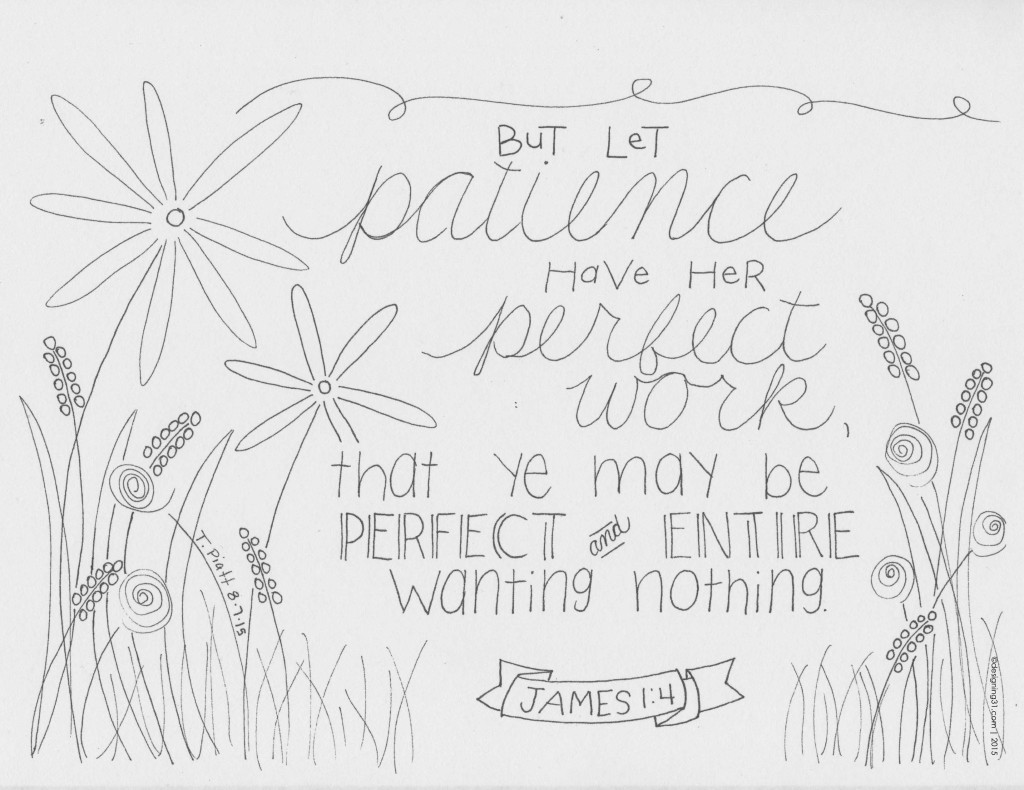 BuT LeT
patience
HaVe HeR
perfect
work,
that ye may be
PERFECT and ENTIRE
wanting nothing.
T. Piatt 8.7.15
JAMES 1:4
©designing31.com | 2015